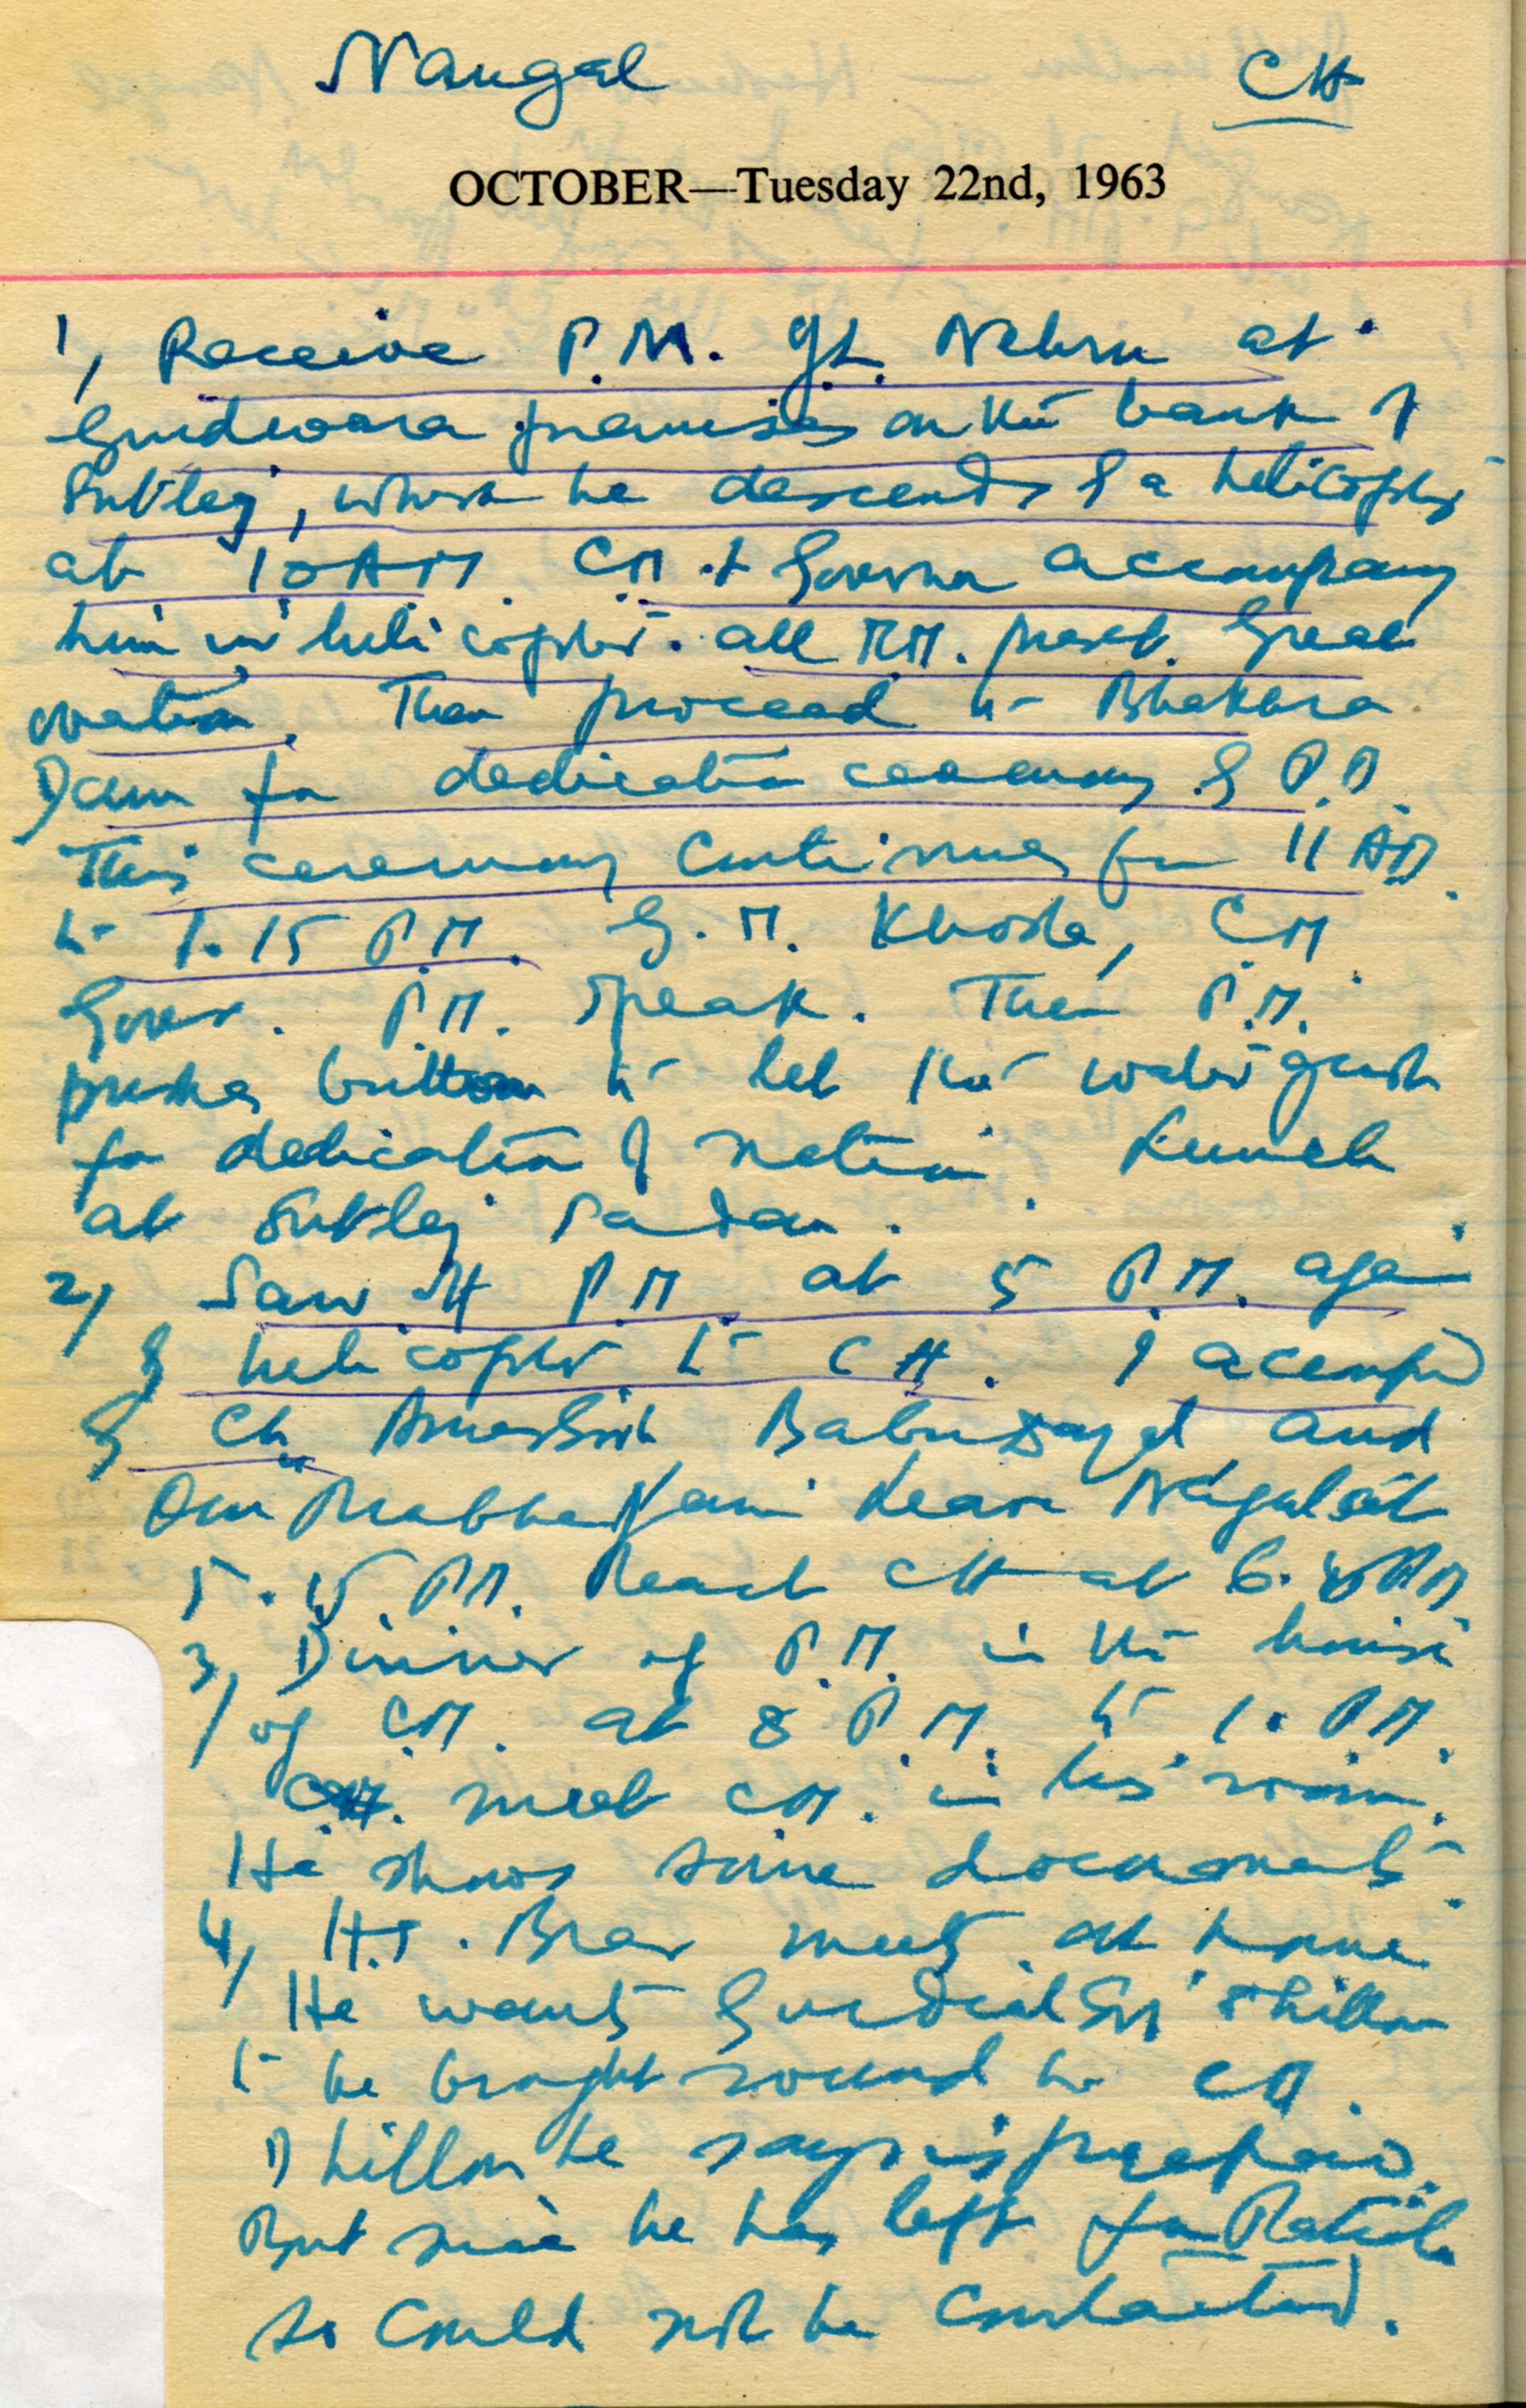 Nangal CH
OCTOBER—Tuesday 22nd, 1963
1, Receive P.M. JL. Nehru at
Gurdwara premises on the bank of
Sutlej, where he descends by a helicopter
at 10 AM. CM. & Governor accompany
him in helicopter. all MM. present. Great
ovation. Then proceed to Bhakhra
Dam for dedication ceremony by P.M.
This ceremony continues from 11 AM.
to 1.15 P.M. G.M. Khosla, CM
Gover. P.M. speak. Then P.M.
pushes button to let the water gush
for dedication of nation. Lunch
at Sutlej Sadan.
2, Saw off P.M. at 5 P.M. again
by helicopter to CH. I accompd
by Ch. Amar Singh Babu Dayal and
Om Prabha Jain leave Nagal at
5.15 P.M. Reach CH at 6. PM
3, Dinner of P.M. in the house
of C.M. at 8 P.M. to 1. P.M.
meet C.M. in his room.
He shows some documents.
4, H.S. Brar meets at home
He wants Gurdial Singh Dhillon
to be brought round to CM.
Dhillon he says is prepared.
But since he has left for Patiala
so could not be contacted.